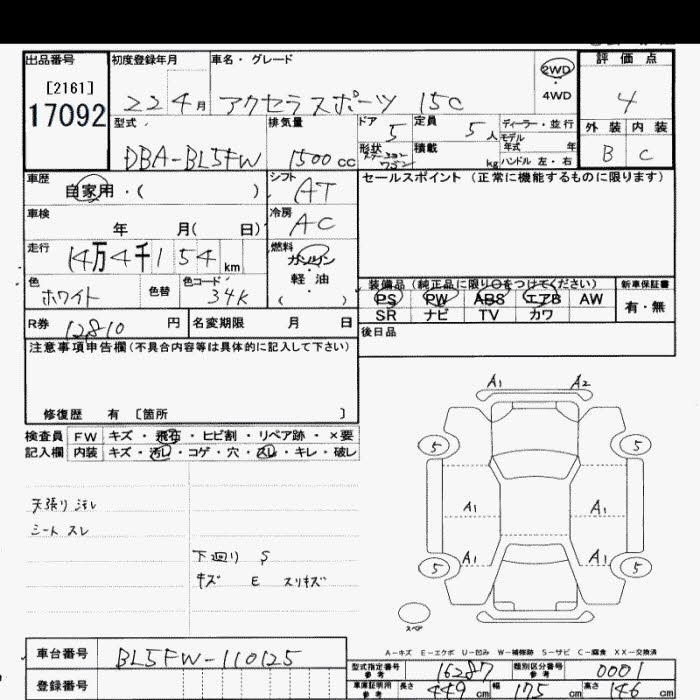 出品番号 初度登録年月 車名・グレード 2WD 評価点
[2161]
17092 22 4月 アクセラスポーツ 15C 4WD 4
型式 排気量 ドア 5 定員 5人 ディーラー・並行 外装 内装
モデル年式 年
DBA-BL5FW 1500cc 形状 ステーションワゴン 積載 kg ハンドル 左・右 B C
車歴 自家用・( ) シフト AT セールスポイント (正常に機能するものに限ります)
車検 年 月( 日) 冷房 AC
走行 14万4千154km 燃料 ガソリン・軽油 ( )
色 ホワイト 色替 色コード 34K
装備品(純正品に限り○をつけてください) 新車保証書
PS PW ABS エアB AW 有・無
SR ナビ TV カワ
R券 12810円 名変期限 月 日 後日品
注意事項申告欄(不具合内容等は具体的に記入して下さい)
修復歴 有 〔箇所 〕
検査員 FW キズ・飛石・ヒビ割・リペア跡・×要
記入欄 内装 キズ・汚レ・コゲ・穴・スレ・キレ・破レ
A1 A2
5 5
天張り汚レ
シート スレ
A1 A1
下廻り S
キズ E スリキズ
A1 A1
5 5
スペア
A-キズ E-エクボ U-凹み W-補修跡 S-サビ C-腐食 XX-交換済
車台番号 BL5FW-110125
型式指定番号 参考 16287 類別区分番号 参考 0001
登録番号 車庫証明用 参考 長さ 449cm 幅 175cm 高さ 146cm